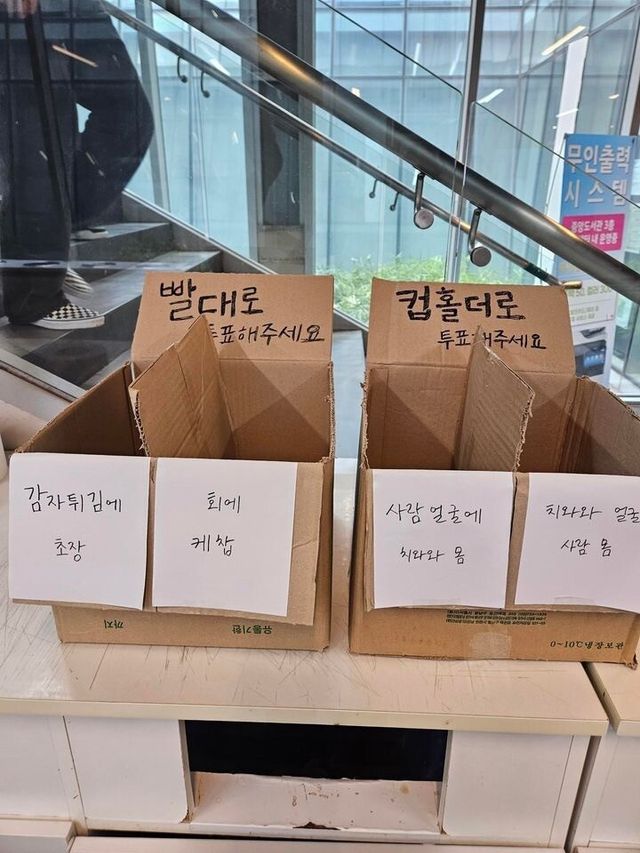 무인출력
시스템
중앙도서관 3층
빨대로
투표해주세요
컵홀더로
투표해주세요
감자튀김에
초장
회에
케찹
사람 얼굴에
치와와 몸
치와와 얼굴
사람 몸
까지
유통기한
0~10℃